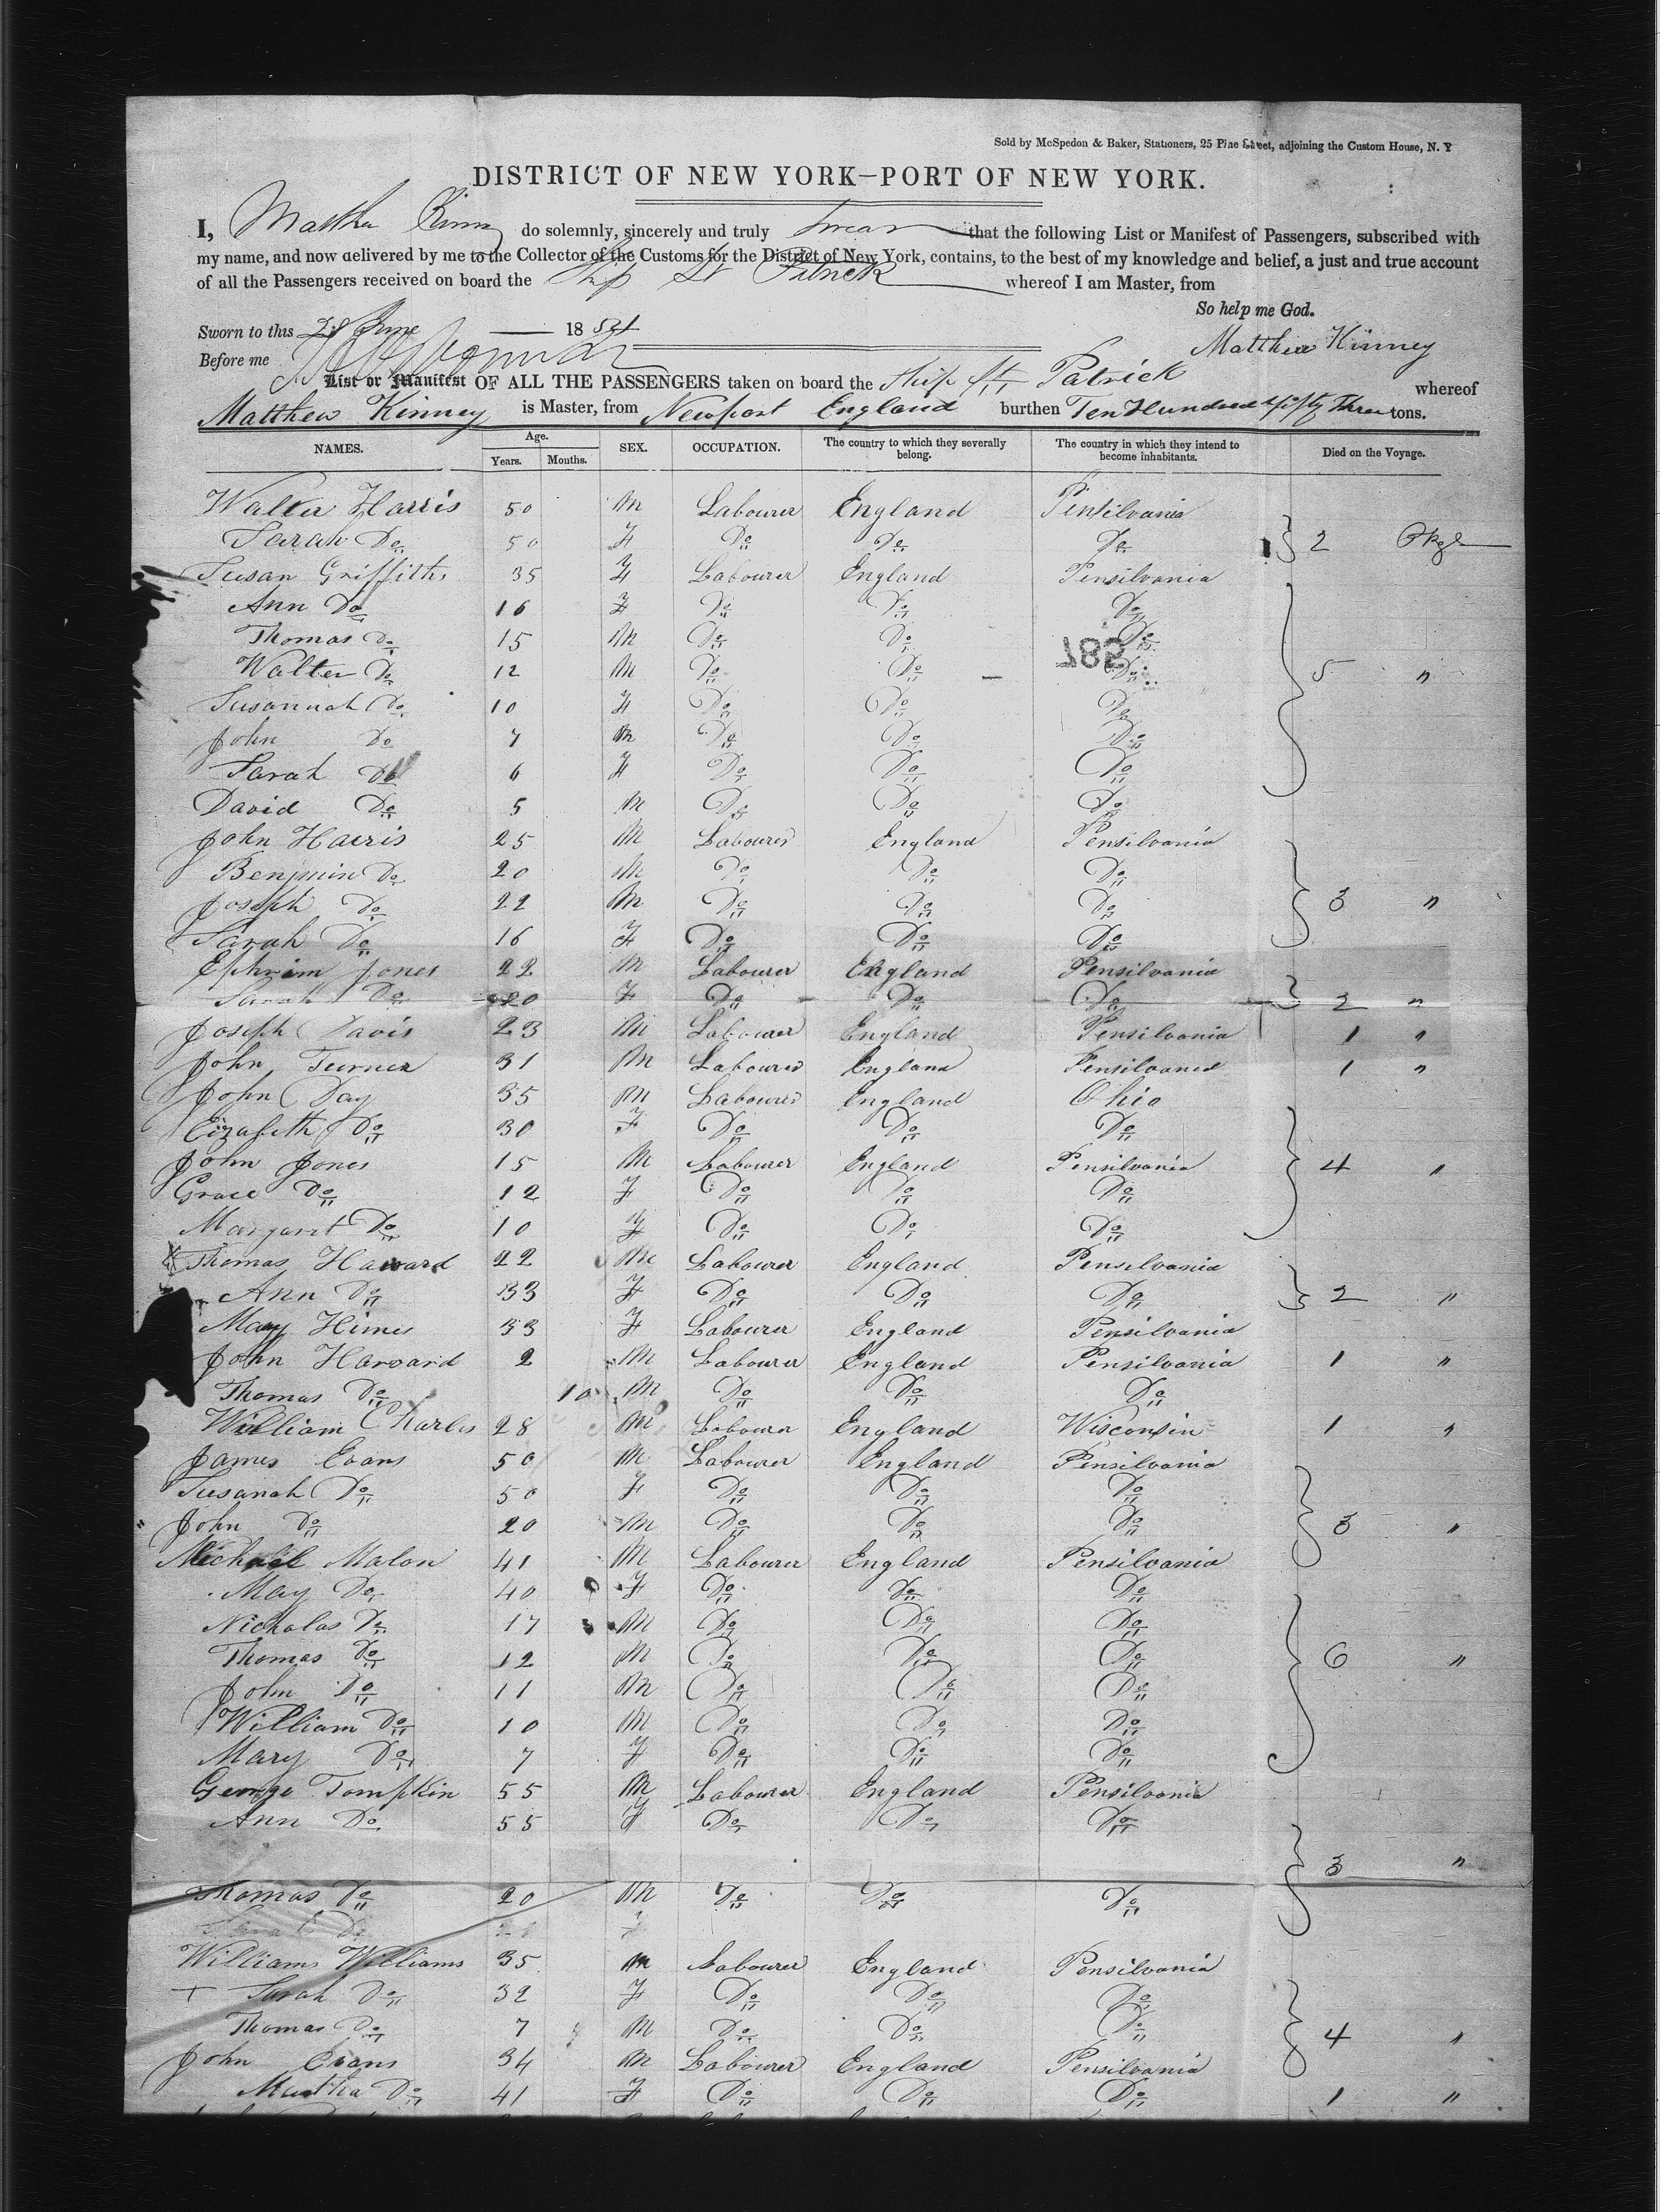 Sold by McSpedon & Baker, Stationers, 25 Pine Street, adjoining the Custom House, N. Y
DISTRICT OF NEW YORK—PORT OF NEW YORK.
I, Matthew Kinney do solemnly, sincerely and truly swear that the following List or Manifest of Passengers, subscribed with
my name, and now delivered by me to the Collector of the Customs for the District of New York, contains, to the best of my knowledge and belief, a just and true account
of all the Passengers received on board the Ship St Patrick whereof I am Master, from
So help me God.
Sworn to this 28 June 1854
Matthew Kinney
Before me
List or Manifest OF ALL THE PASSENGERS taken on board the Ship St Patrick whereof
Matthew Kinney is Master, from Newport England burthen Ten Hundred & fifty Three tons.
NAMES. Age. Years. Months. SEX. OCCUPATION. The country to which they severally belong. The country in which they intend to become inhabitants. Died on the Voyage.
Walter Harris 50 M Labourer England Pensilvania
Sarah Do 50 F Do Do Do 2 Pkgs
Susan Griffiths 35 F Labourer England Pensilvania
Ann Do 16 F Do Do Do
Thomas Do 15 M Do Do Do
787
Walter Do 12 M Do Do Do 5 "
Susannah Do 10 F Do Do Do
John Do 7 M Do Do Do
Sarah Do 6 F Do Do Do
David Do 5 M Do Do Do
John Harris 25 M Labourer England Pensilvania
Benjmin Do 20 M Do Do Do
Joseph Do 22 M Do Do Do 3 "
Sarah Do 16 F Do Do Do
Ephrim Jones 22 M Labourer England Pensilvania
Sarah Do 20 F Do Do Do 2 "
Joseph Davis 23 M Labourer England Pensilvania 1 "
John Turner 31 M Labourer England Pensilvania 1 "
John Day 35 M Labourer England Ohio
Eizabeth Do 30 F Do Do Do
John Jones 15 M Labourer England Pensilvania 4 "
Grace Do 12 F Do Do Do
Margaret Do 10 F Do Do Do
Thomas Haward 22 M Labourer England Pensilvania
Ann Do 33 F Do Do Do 2 "
Mary Himes 33 F Labourer England Pensilvania
John Harvard 2 M Labourer England Pensilvania 1 "
Thomas Do 10 M Do Do Do
William Charles 28 M Labourer England Wisconsin 1 "
James Evans 50 M Labourer England Pensilvania
Susanah Do 50 F Do Do Do
John Do 20 M Do Do Do 3 "
Michael Malon 41 M Labourer England Pensilvania
May Do 40 F Do Do Do
Nicholas Do 17 M Do Do Do
Thomas Do 12 M Do Do Do 6 "
John Do 11 M Do Do Do
William Do 10 M Do Do Do
Mary Do 7 F Do Do Do
George Tompkin 55 M Labourer England Pensilvania
Ann Do 55 F Do Do Do
3 "
Thomas Do 20 M Do Do Do
Williams Williams 35 M Labourer England Pensilvania
+ Sarah Do 32 F Do Do Do
Thomas Do 7 M Do Do Do 4 "
John Evans 34 M Labourer England Pensilvania
Martha Do 41 F Do Do Do 1 "